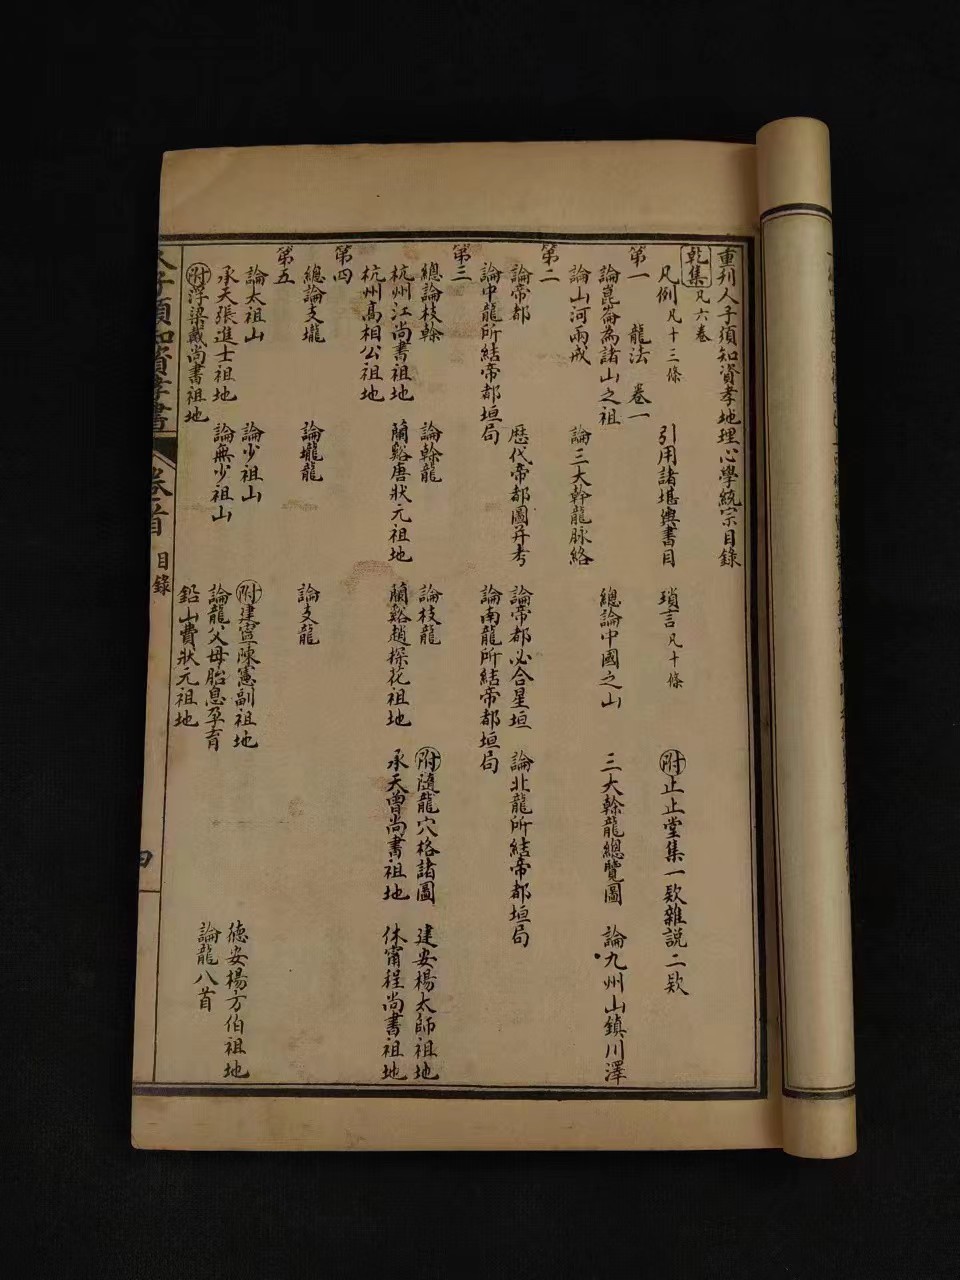 重刋人子須知資孝地理心學統宗目錄
乾集凡六卷
凡例凡十三條 引用諸堪輿書目 瑣言凡十條 附止止堂集一欵雜説二欵
第一 龍法 卷一
論崑崙為諸山之祖 總論中國之山 三大幹龍總覽圖 論九州山鎮川澤
論山河兩戒 論三大幹龍脉絡
第二
論帝都 歷代帝都圖并考 論帝都必合星垣 論北龍所結帝都垣局
論中龍所結帝都垣局 論南龍所結帝都垣局
第三
總論枝幹 論幹龍 論枝龍 附隨龍穴格諸圖 建安楊太師祖地
杭州江尚書祖地 蘭谿唐狀元祖地 蘭谿趙探花祖地 承天曾尚書祖地 休甯程尚書祖地
杭州高相公祖地
第四
總論支壠 論壠龍 論支龍
第五
論太祖山 論少祖山 附建寧陳憲副祖地 德安楊方伯祖地
承天張進士祖地 論無少祖山 論龍父母胎息孕育 論龍八首
附浮梁戴尚書祖地 鉛山費狀元祖地
人子須知資孝書 卷首 目錄